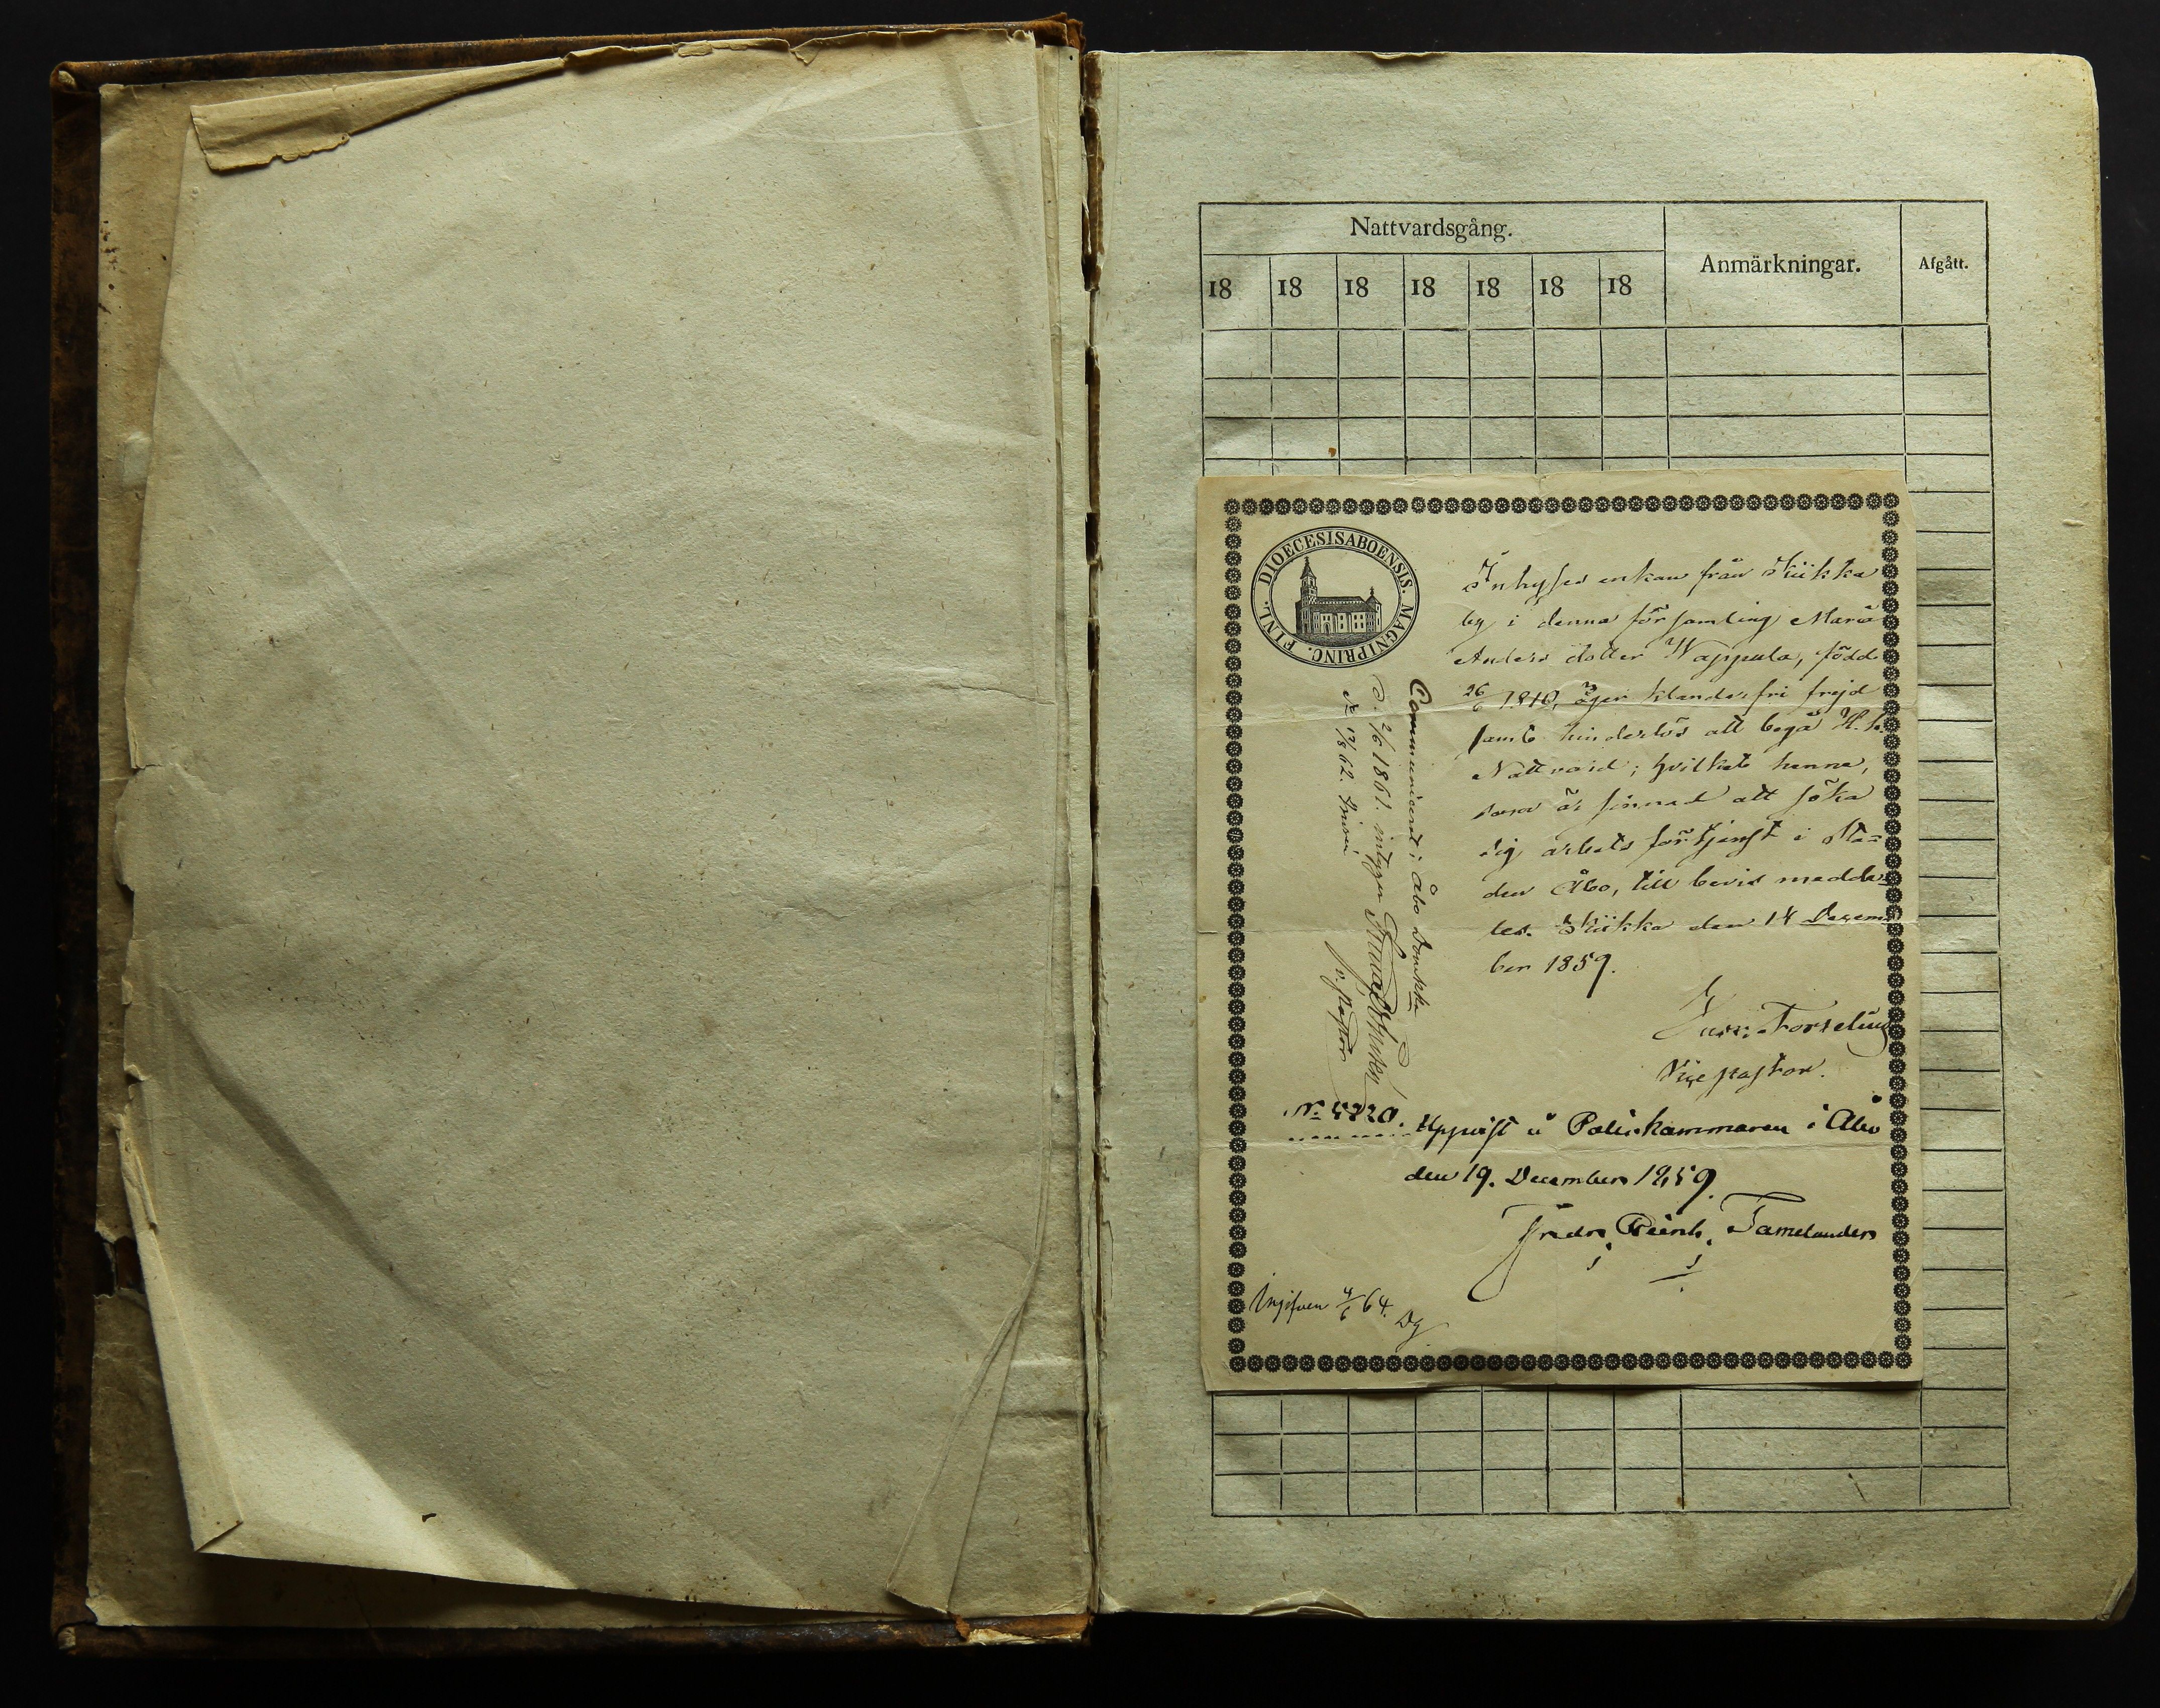 Nattvardsgång.
Anmärkningar.
Afgått.
18 18 18 18 18 18 18
DIOECESISABOENSIS. MAGNIPRINC. FINL.
Inhyses enkan från Kiikka
by i denna församling Maria
Anders dotter Wappula, född
26/6 1810, äger klanderfri frejd
samt hinderlös att begå H. h.
Nattvard; hvilket henne,
som är sinnad att söka
sig arbets förtjenst i Sta=
den Åbo, till bevis medde=
les. Kiikka den 14 Decem=
ber 1859.
Forselius
Vice pastor.
Communicerat i Åbo Domkka
d. 2/6 1861 intygar
v. pastor
12/8 62.
No 4220. Uppvist i Poliskammaren i Åbo
den 19. December 1859.
Fredr. Reinh. Tamelander
Ingifven 4/6 64.